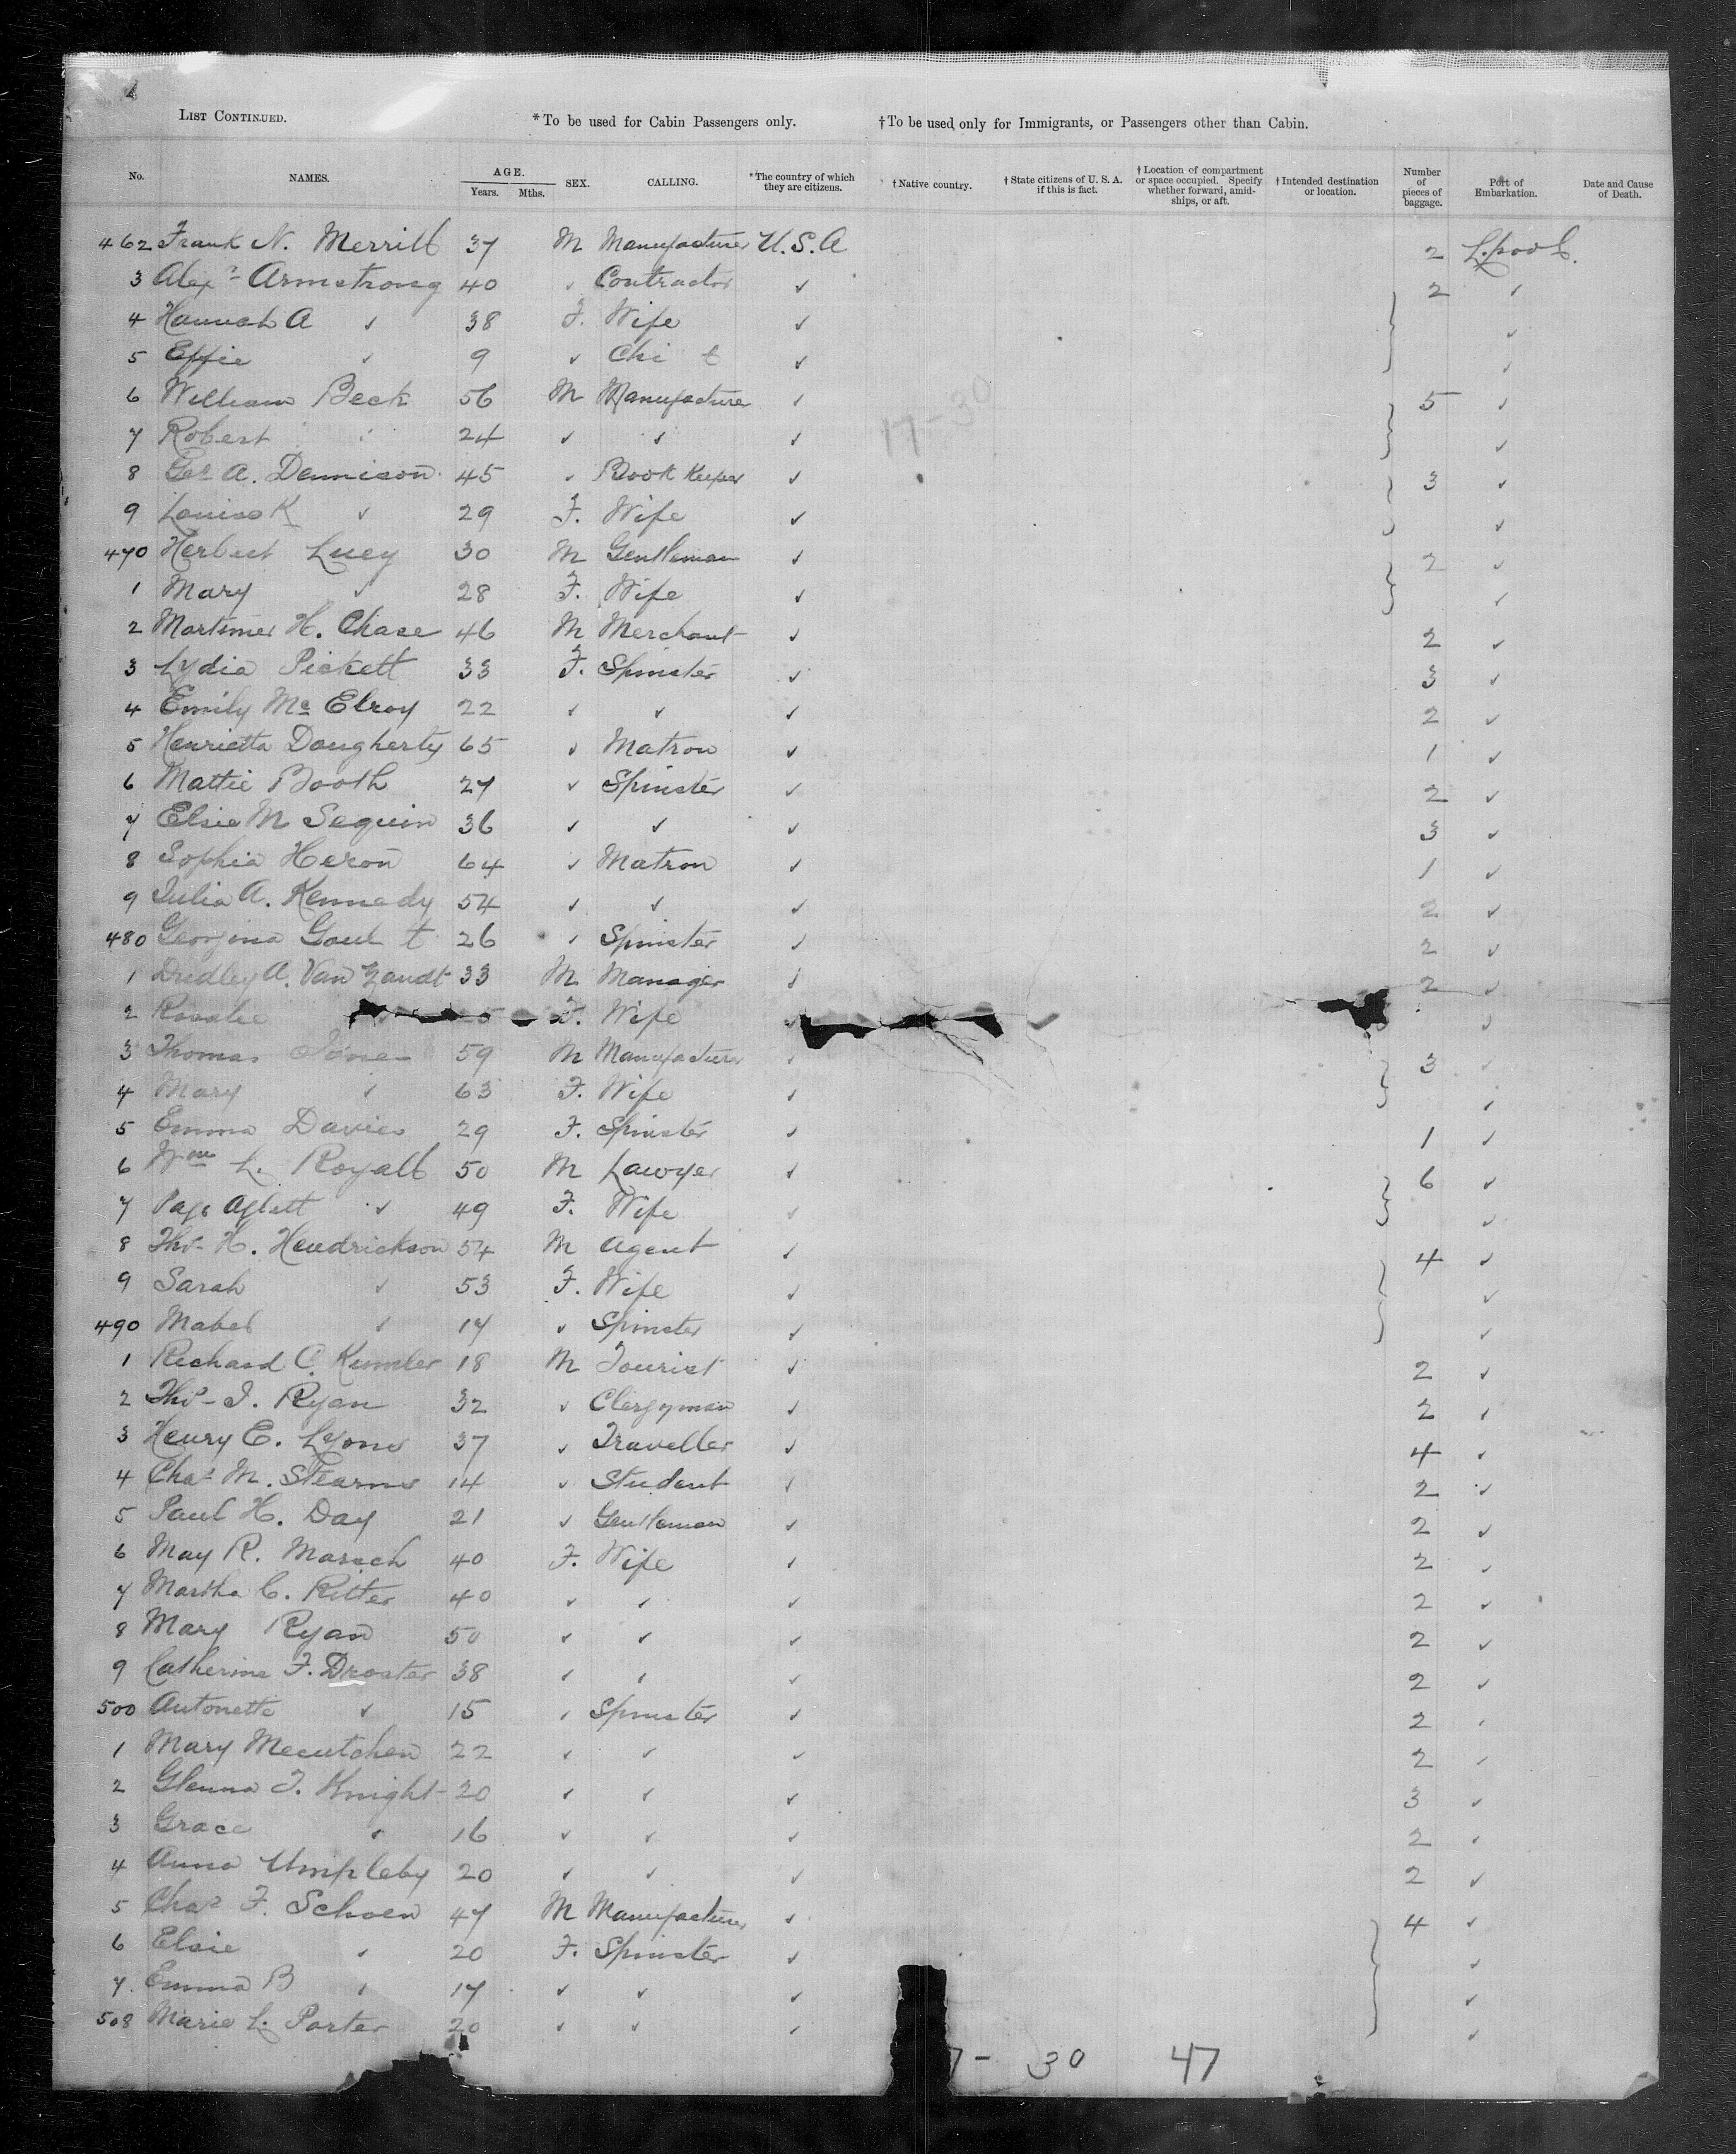 LIST CONTINUED. * To be used for Cabin Passengers only. † To be used only for Immigrants, or Passengers other than Cabin.
No. NAMES. AGE. Years. Mths. SEX. CALLING. * The country of which they are citizens. † Native country. † State citizens of U. S. A. if this is fact. † Location of compartment or space occupied. Specify whether forward, amidships, or aft. † Intended destination or location. Number of pieces of baggage. Port of Embarkation. Date and Cause of Death.
462 Frank N. Merrill 37 M Manufacturer U.S.A 2 L.pool.
3 Alexr Armstrong 40 ✓ Contractor ✓ 2 ✓
4 Hannah A ✓ 38 F. Wife ✓ ✓
5 Effie ✓ 9 ✓ Chi ✓ ✓
6 William Beck 56 M Manufacturer ✓ 5 ✓
17-30
7 Robert ✓ 24 ✓ ✓ ✓ ✓
8 Geo A. Dennison 45 ✓ Book Keeper ✓ 3 ✓
9 Louise K ✓ 29 F. Wife ✓ ✓
470 Herbert Lucy 30 M Gentleman ✓ 2 ✓
1 Mary ✓ 28 F. Wife ✓ ✓
2 Mortimer H. Chase 46 M Merchant ✓ 2 ✓
3 Lydia Pickett 33 F. Spinster ✓ 3 ✓
4 Emily Mc Elroy 22 ✓ ✓ ✓ 2 ✓
5 Henrietta Dougherty 65 ✓ Matron ✓ 1 ✓
6 Mattie Booth 27 ✓ Spinster ✓ 2 ✓
7 Elsie M Seguin 36 ✓ ✓ ✓ 3 ✓
8 Sophia Heron 64 ✓ Matron ✓ 1 ✓
9 Julia A. Kennedy 54 ✓ ✓ ✓ 2 ✓
480 Georgina Goul t 26 ✓ Spinster ✓ 2 ✓
1 Dudley A. Van Zandt 33 M Manager ✓ 2 ✓
2 Rosalie 5 F. Wife ✓ ✓
3 Thomas Jones 59 M Manufacturer ✓ 3 ✓
4 Mary ✓ 63 F. Wife ✓ ✓
5 Emma Davies 29 F. Spinster ✓ 1 ✓
6 Wm L. Royall 50 M Lawyer ✓ 6 ✓
7 Page Aylett ✓ 49 F. Wife ✓ ✓
8 Tho- H. Hendrickson 54 M Agent ✓ 4 ✓
9 Sarah ✓ 53 F. Wife ✓ ✓
490 Mabel ✓ 17 ✓ Spinster ✓ ✓
1 Richard C. Kumler 18 M Tourist ✓ 2 ✓
2 Thos- J. Ryan 32 ✓ Clergyman ✓ 2 ✓
3 Henry E. Lyons 37 ✓ Traveller ✓ 4 ✓
4 Chas M. Stearns 14 ✓ Student ✓ 2 ✓
5 Paul H. Day 21 ✓ Gentleman ✓ 2 ✓
6 May R. Marach 40 F. Wife ✓ 2 ✓
7 Martha C. Ritter 40 ✓ ✓ ✓ 2 ✓
8 Mary Ryan 50 ✓ ✓ ✓ 2 ✓
9 Catherine F. Droster 38 ✓ ✓ ✓ 2 ✓
500 Antonette ✓ 15 ✓ Spinster ✓ 2 ✓
1 Mary Mecutchen 22 ✓ ✓ ✓ 2 ✓
2 Glenna T. Knight 20 ✓ ✓ ✓ 3 ✓
3 Grace ✓ 16 ✓ ✓ ✓ 2 ✓
4 Anna Umpleby 20 ✓ ✓ ✓ 2 ✓
5 Chas F. Schoen 47 M Manufacturer ✓ 4 ✓
6 Elsie ✓ 20 F. Spinster ✓ ✓
7. Emma B ✓ 17 ✓ ✓ ✓ ✓
508 Marie L. Porter 20 ✓ ✓ ✓ ✓
7- 30 47